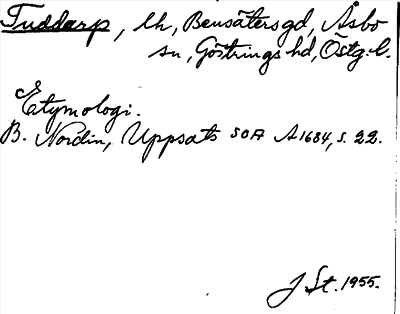 Tuddarp, lh, Bensätersgd, Åsbo
sn, Göstrings hd, Östg.l.
Etymologi.
B. Nordin, Uppsats SOA A1684, s. 22.
J St. 1955.